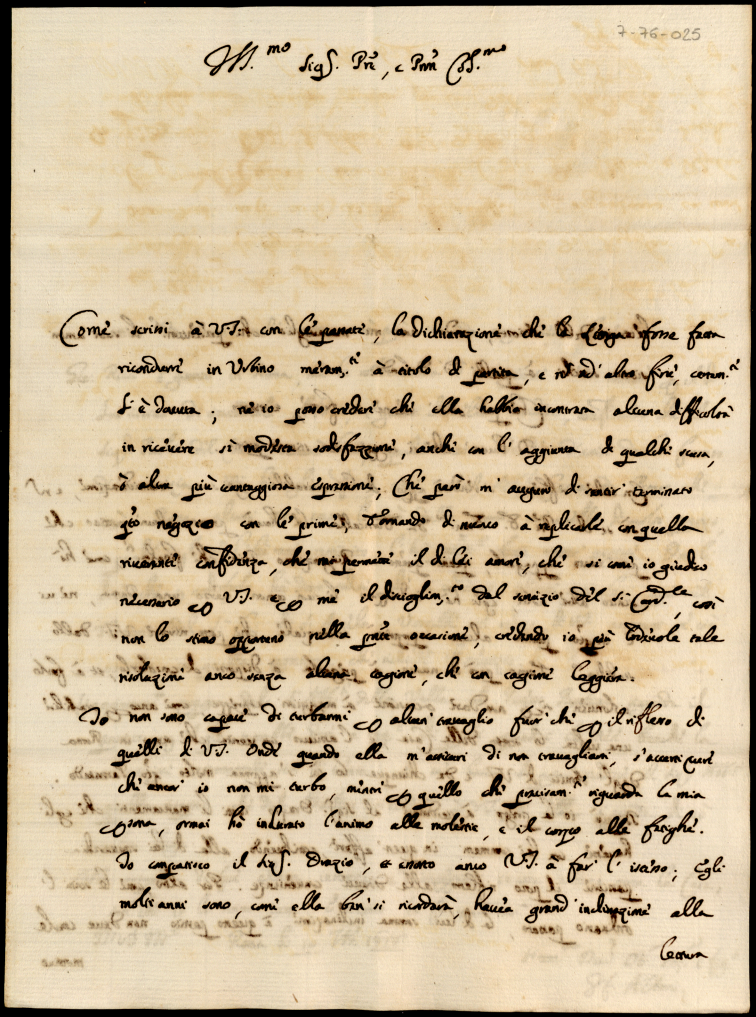 7-76-025
Ill.mo Sig.r Prē, e Prōn Col.mo
Come scrissi à V.S. con le passate, la dichiarazione che le fosse fatta
ricondurre in Urbino meram.te à titolo di partita, e nō ad altro fine, certam.te
si è dovuta; ne io posso credere che ella habbia incontrata alcuna difficoltà
in ricevere sì modesta sodisfazzione, anche con l'aggiunta di qualche scusa,
ò altra più vantaggiosa espressione; Che però m'auguro di sentir terminato
q̄to negozio con le prime; Tornando di nuovo à replicarle con quella
riverente confidenza, che mi permette il di Lei amore, che si come io giudico
necessario per V.S. e per me il discioglim.to dal servizio del S.r Card.le, così
non lo stimo opportuno nella p̄nte occasione, credendo io più tale
risoluzione anco senza alcuna cagione, che con cagione leggiera.
Io non sono capace di turbarmi per alcun travaglio fuor che per il riflesso di
quelli di V.S. Onde quando ella m'accerti di non travagliarsi, s'accerti pure
che ancor io non mi turbo, mentre per quello che precisam.te riguarda la mia
persona, ormai hò indurato l'animo alle molestie, e il corpo alle fatighe.
Io compatisco il Sig.r Orazio, et esorto anco V.S. à far l'istesso; Egli
molti anni sono, come ella ben si ricorderà, haveva grand'inclinazione alla
lettura